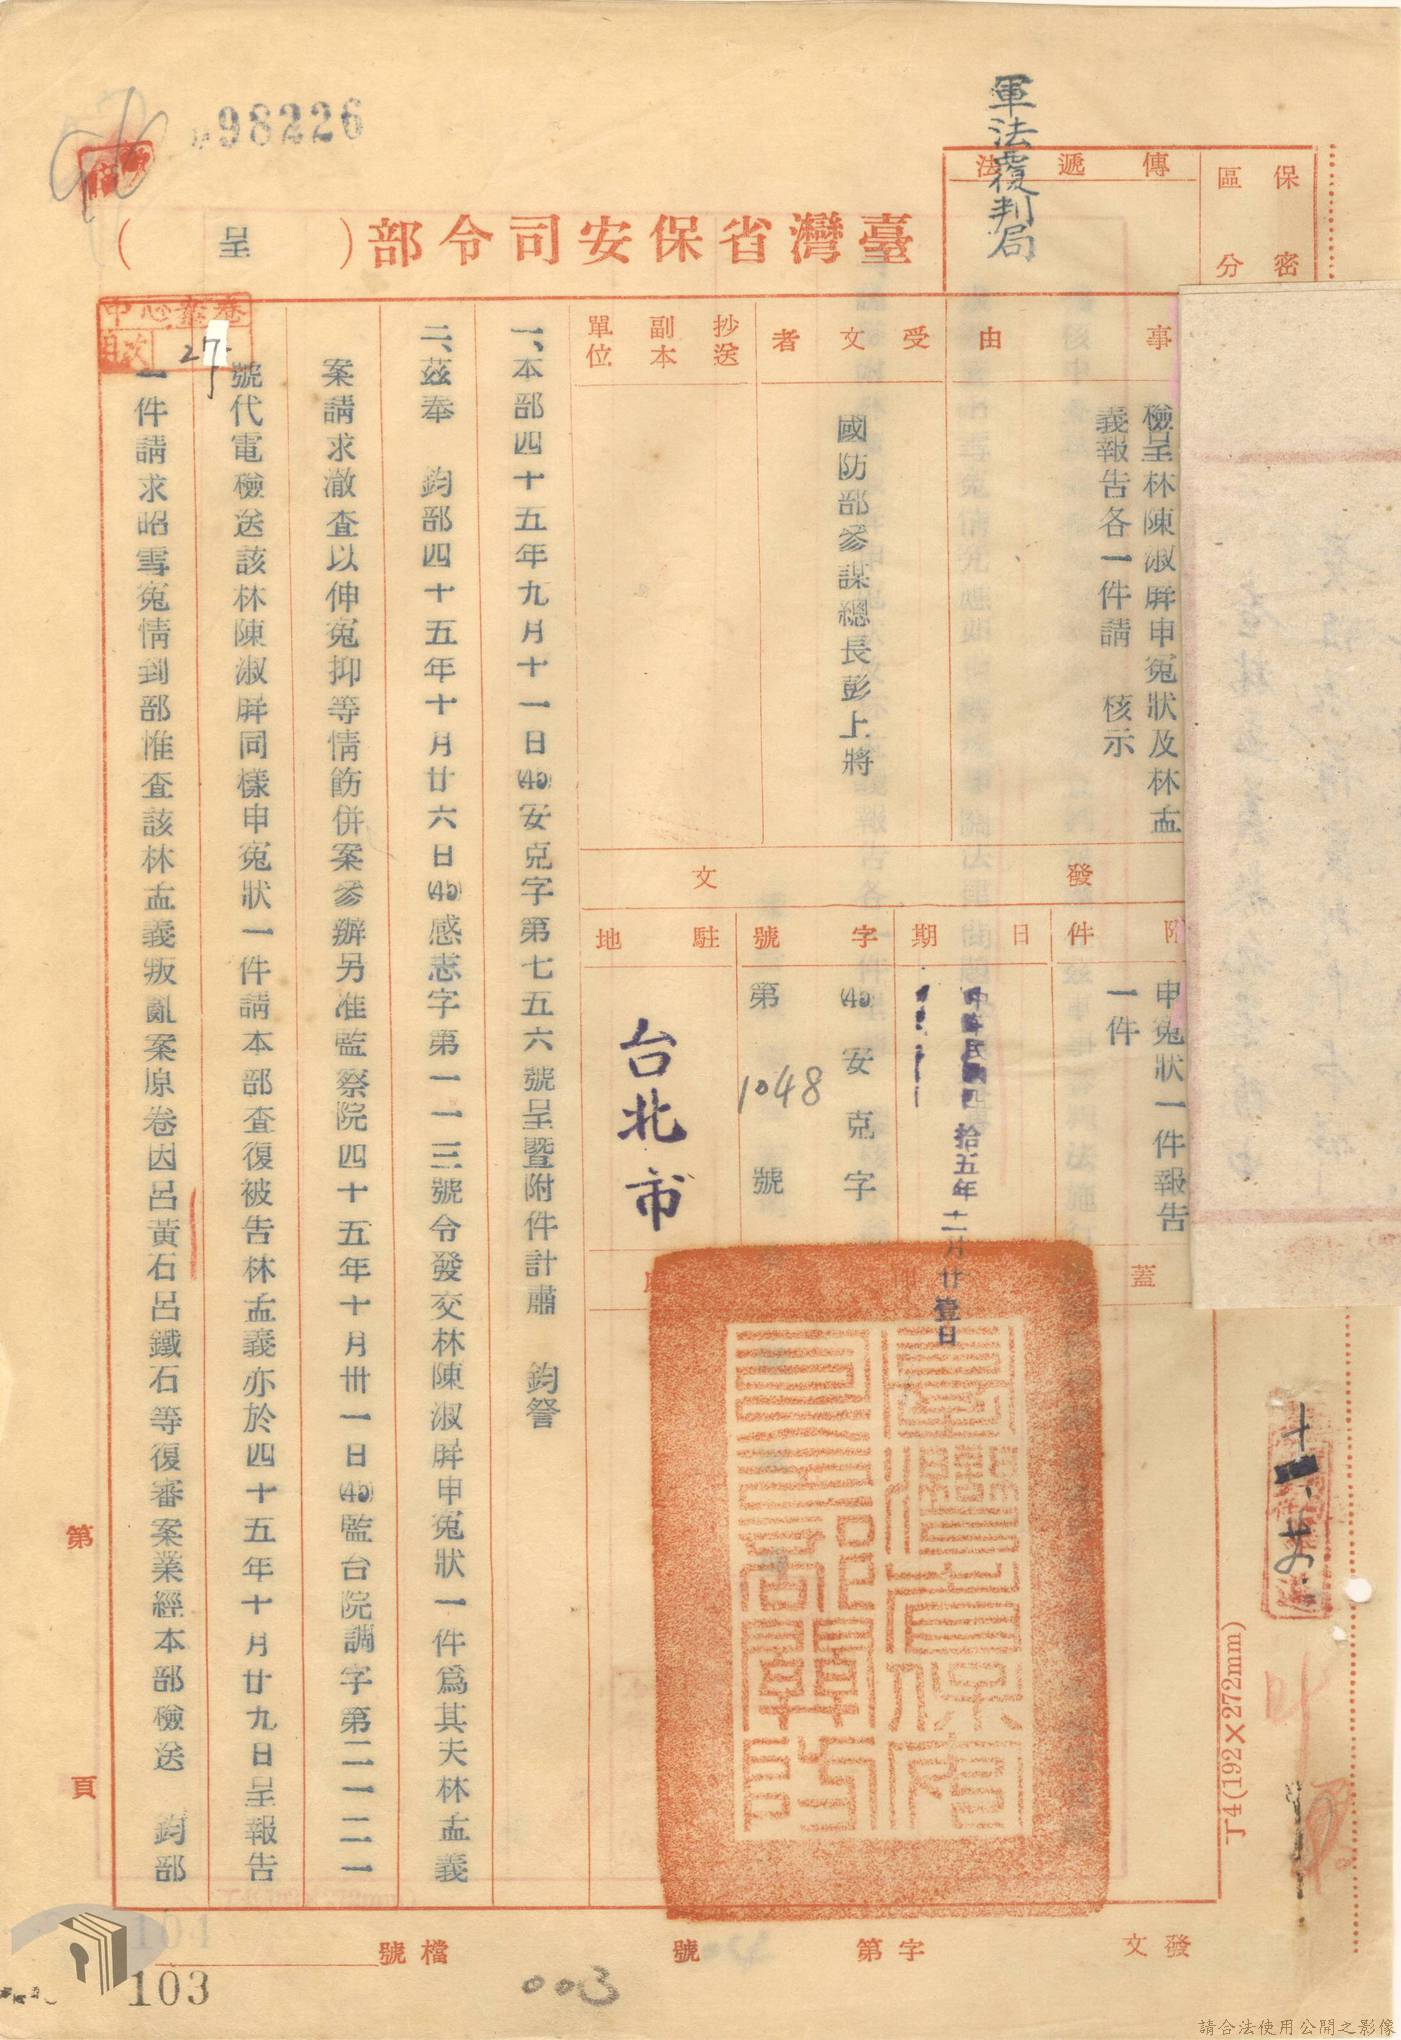 軍法覆判局
98226
保密
區分
傳遞法
臺灣省保安司令部(呈)
事由
檢呈林陳淑屏申寃狀及林孟
義報告各一件請 核示
受文者
國防部參謀總長彭上將
抄送
副本
單位
發文
附件
申寃狀一件報告
一件
日期
中華民國四拾五年十一月廿壹日
字號
(45)安克字
第1048號
駐地
台北市
蓋印
臺灣省保安司令部關防
一、本部四十五年九月十一日(45)安克字第七五六號呈暨附件計肅 鈞詧
二、茲奉 鈞部四十五年十月廿六日(45)感志字第一一三號令發交林陳淑屏申寃狀一件爲其夫林孟義
案請求澈查以伸寃抑等情飭併案參辦另准監察院四十五年十月卅一日(45)監台院調字第二一二一
號代電檢送該林陳淑屏同樣申寃狀一件請本部查復被告林孟義亦於四十五年十月廿九日呈報告
一件請求昭雪寃情到部惟查該林孟義叛亂案原卷因呂黃石呂鐵石等復審案業經本部檢送 鈞部
27
第 頁
丁4(192×272mm)
發文 字第 號
檔號
104
103
003
請合法使用公開之影像